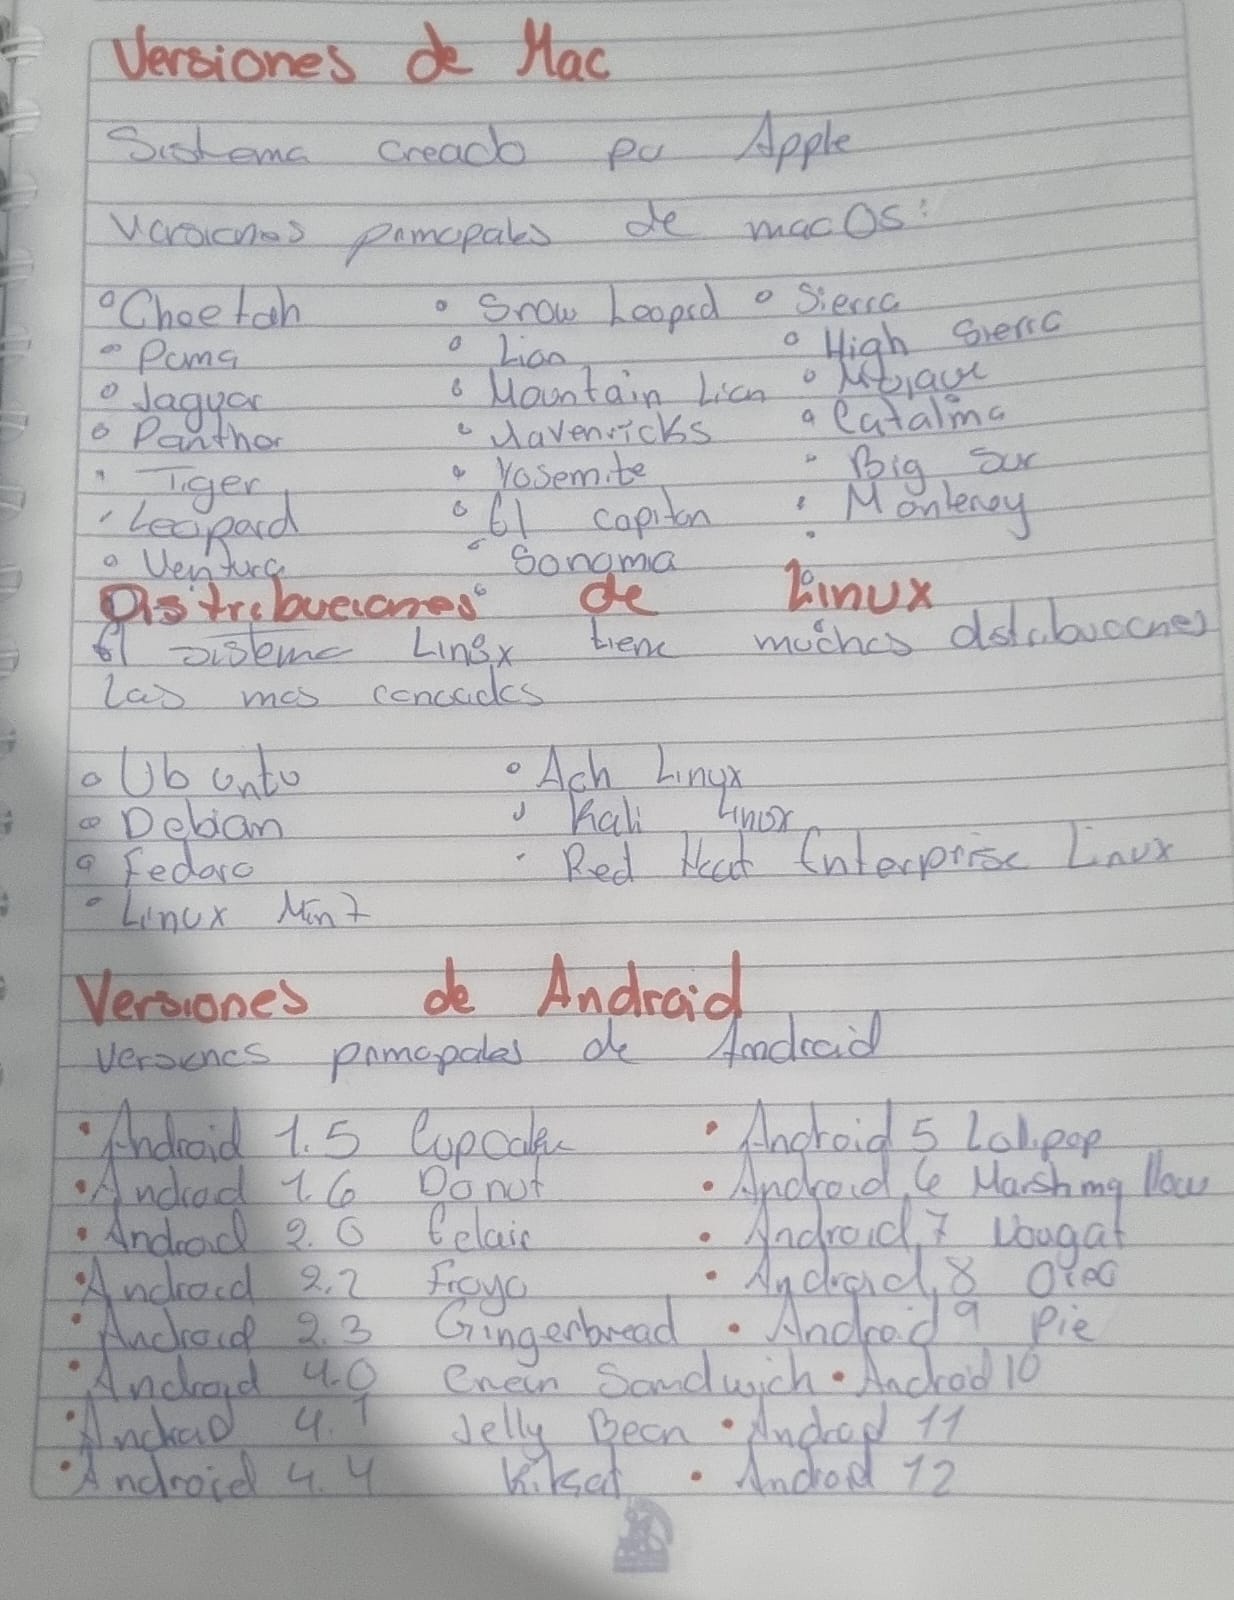 Versiones de Mac
Sistema creado por Apple
Versiones principales de macOS:
Cheetah
Puma
Jaguar
Panther
Tiger
Leopard
Ventura
Snow Leopard
Lion
Mountain Lion
Mavenricks
Yosemite
El capitan
Sonoma
Sierra
High Sierra
Mojave
Catalina
Big Sur
Monterey
Distribuciones de Linux
El sistema Linux tiene muchas distribuciones
las mas conocidas
Ubuntu
Debian
Fedora
Linux Mint
Ach Linux
Kali Linux
Red Heat Enterprise Linux
Versiones de Android
Versiones principales de Android
Android 1.5 Cupcake
Android 1.6 Donut
Android 2.0 Eclair
Android 2.2 Froyo
Android 2.3 Gingerbread
Android 4.0 Sandwich
Android 4.1 Jelly Bean
Android 4.4
Android 5 Lolipop
Android 6 Marshmallow
Android 7 Nougat
Android 8 Oreo
Android 9 Pie
Android 10
Android 11
Android 12